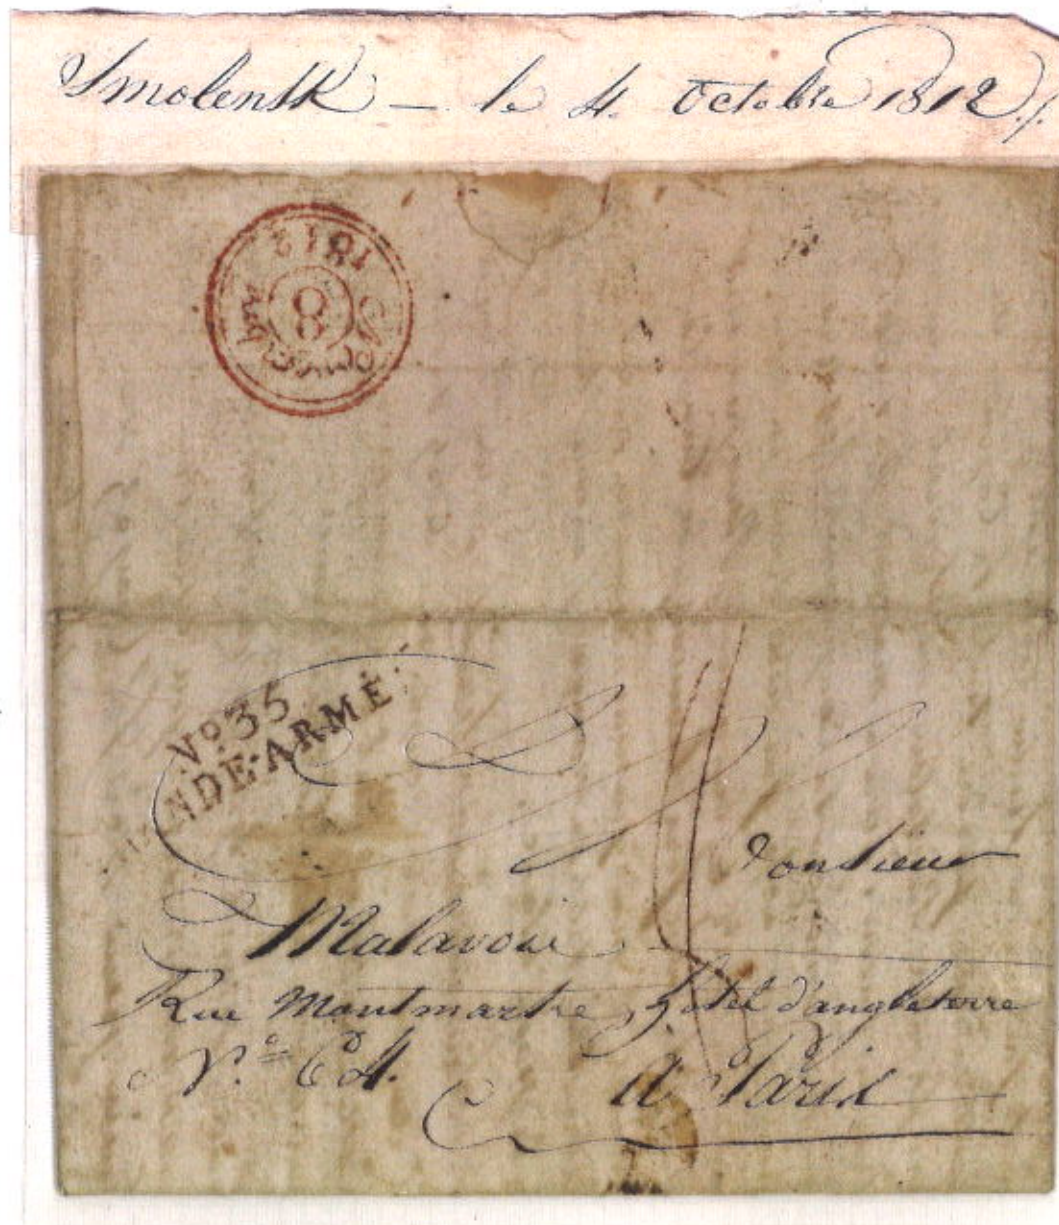 Smolensk - le 4. Octobre 1812
1812
8
No. 35
NDE-ARMÉ
Monsieur
Malavoie
Rue Montmartre, hotel d'angleterre
N.o 64. A Paris